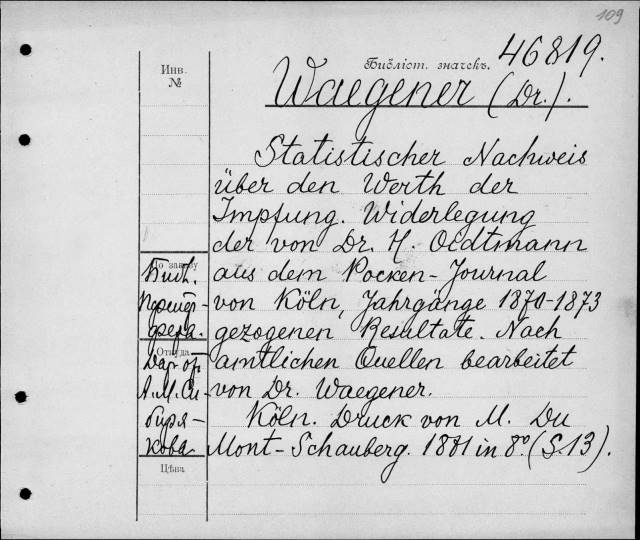 109
Инв.
№
Библіот. значекъ. 46819.
Waegener (Dr.).
Statistischer Nachweis
über den Werth der
Impfung. Widerlegung
der von Dr. H. Oidtmann
aus dem Pocken-Journal
von Köln, Jahrgänge 1870-1873
gezogenen Resultate. Nach
amtlichen Quellen bearbeitet
von Dr. Waegener.
Köln. Druck von M. Du
Mont-Schauberg. 1881 in 8° (S. 13).
По заказу
Библ.
Откуда
А. М. Си-
биря-
кова
Цѣна